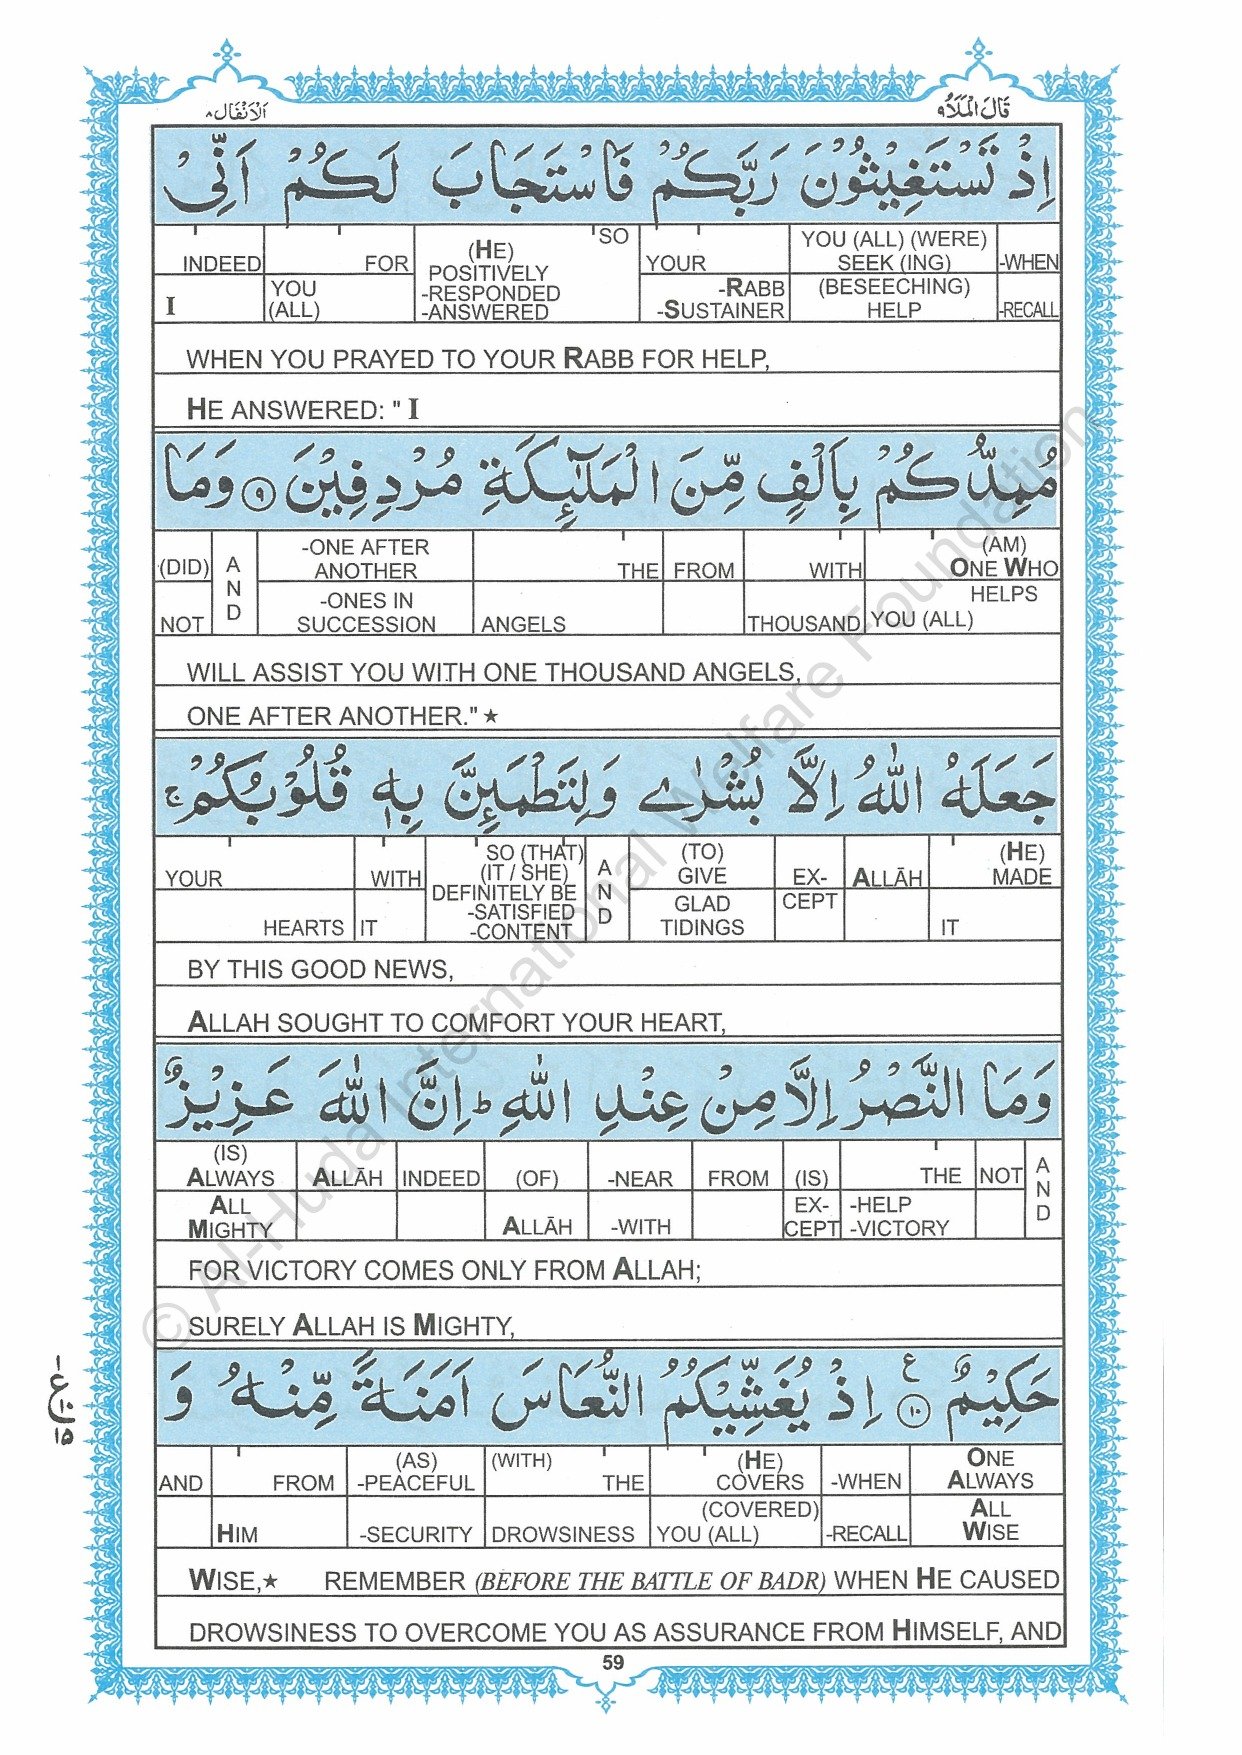 اَلْاَنْفَال ٨
قَالَ الْمَلَاُ ٩
اِذْ تَسْتَغِيْثُوْنَ رَبَّكُمْ فَاسْتَجَابَ لَكُمْ اَنِّىْ
INDEED FOR (HE) SO YOUR YOU (ALL) (WERE) -WHEN
POSITIVELY SEEK (ING)
I YOU -RESPONDED -RABB (BESEECHING) -RECALL
(ALL) -ANSWERED -SUSTAINER HELP
WHEN YOU PRAYED TO YOUR RABB FOR HELP,
HE ANSWERED: " I
مُمِدُّكُمْ بِاَلْفٍ مِّنَ الْمَلٰٓئِكَةِ مُرْدِفِيْنَ ٩ وَمَا
(DID) AND -ONE AFTER THE FROM WITH (AM)
ANOTHER ONE WHO
NOT -ONES IN ANGELS THOUSAND YOU (ALL) HELPS
SUCCESSION
WILL ASSIST YOU WITH ONE THOUSAND ANGELS,
ONE AFTER ANOTHER." ★
جَعَلَهُ اللّٰهُ اِلَّا بُشْرٰى وَلِتَطْمَئِنَّ بِهٖ قُلُوْبُكُمْ ۚ
YOUR WITH SO (THAT) AND (TO) EX- ALLĀH (HE)
(IT / SHE) GIVE CEPT MADE
HEARTS IT DEFINITELY BE GLAD IT
-SATISFIED TIDINGS
-CONTENT
BY THIS GOOD NEWS,
ALLAH SOUGHT TO COMFORT YOUR HEART,
وَمَا النَّصْرُ اِلَّا مِنْ عِنْدِ اللّٰهِ ؕ اِنَّ اللّٰهَ عَزِيْزٌ
(IS) ALLĀH INDEED (OF) -NEAR FROM (IS) THE NOT AND
ALWAYS
ALL ALLĀH -WITH EX- -HELP
MIGHTY CEPT -VICTORY
FOR VICTORY COMES ONLY FROM ALLAH;
SURELY ALLAH IS MIGHTY,
حَكِيْمٌ ١٠ ع اِذْ يُغَشِّيْكُمُ النُّعَاسَ اَمَنَةً مِّنْهُ وَ
AND FROM (AS) (WITH) THE (HE) -WHEN ONE
-PEACEFUL COVERS ALWAYS
HIM -SECURITY DROWSINESS (COVERED) -RECALL ALL
YOU (ALL) WISE
WISE,★ REMEMBER (BEFORE THE BATTLE OF BADR) WHEN HE CAUSED
DROWSINESS TO OVERCOME YOU AS ASSURANCE FROM HIMSELF, AND
59
© Al-Huda International Welfare Foundation